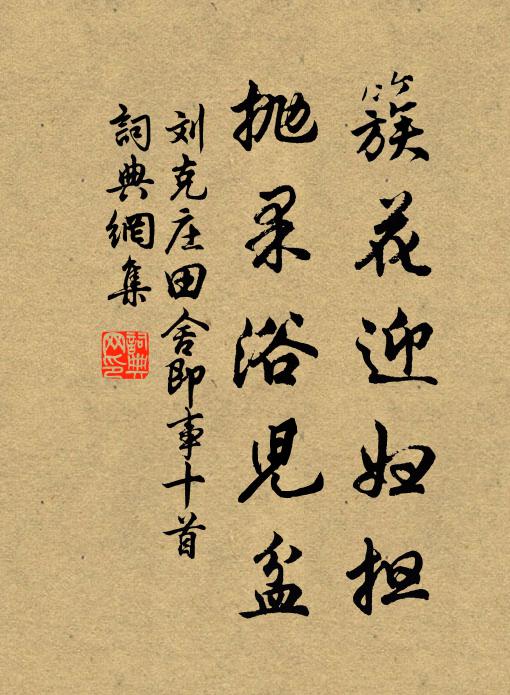 簇花迎妇担
抛果浴兒盆
刘克庄田舍即事十首
詞典網集
詞典
网印